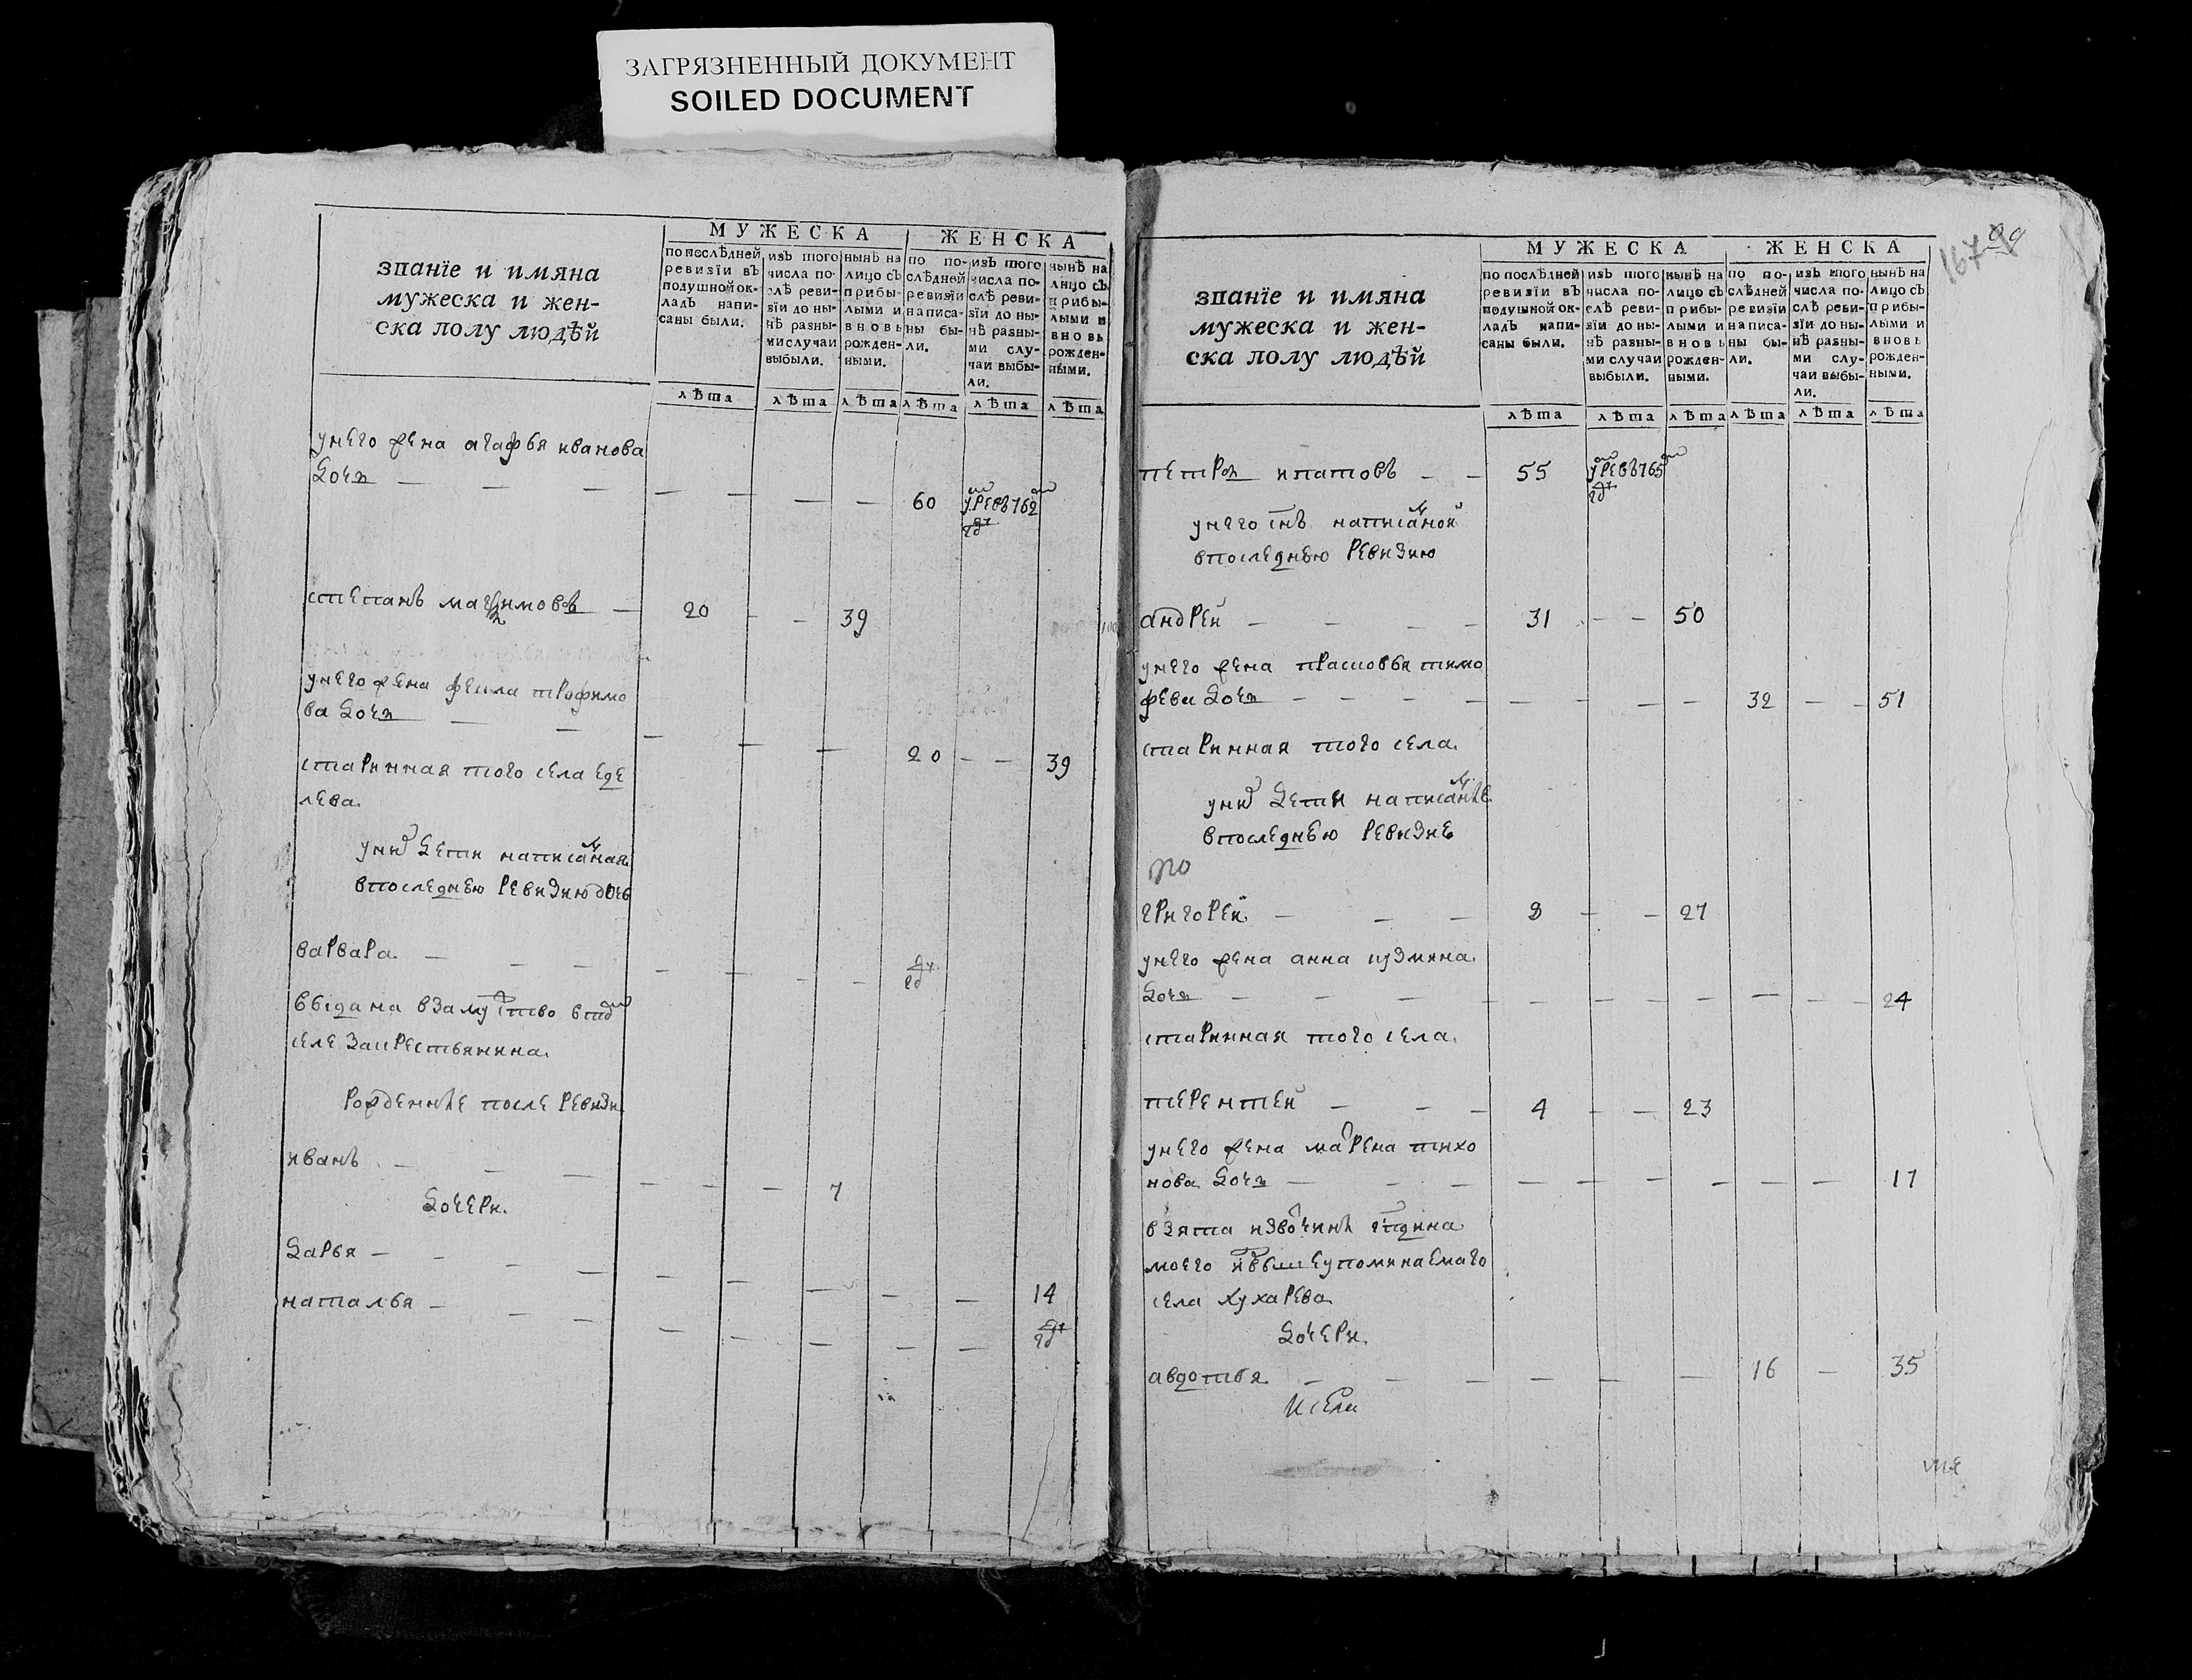 ЗАГРЯЗНЕННЫЙ ДОКУМЕНТ
SOILED DOCUMENT
званїе и имяна
мужеска и жен-
ска полу людѣй
МУЖЕСКА
ЖЕНСКА
по послѣдней ревизїи въ подушной ок- ладъ напи- саны были.
изъ того числа по- слѣ реви- зїи до ны- нѣ разны- ми случаи выбыли.
нынѣ на лицо съ прибы- лыми и вновь рожден- ными.
по по- слѣдней ревизїи написа- ны бы- ли.
изъ того числа по- слѣ реви- зїи до ны- нѣ разны- ми слу- чаи выбы- ли.
нынѣ на лицо съ прибы- лыми и вновь рожден- ными.
лѣта лѣта лѣта лѣта лѣта лѣта
унего жена агафья иванова
дочь 60 умре въ 762 год
степанъ 20 39
унего жена фекла трофимо
ва дочь 20 39
старинная того села еде
лева
уних дети написанная
впоследнею ревизию дочь
варвара
выдана взамуство втом
селе закрестьянина
рожденные после ревизи
иванъ 7
дочери
дарья 14
наталья
званїе и имяна
мужеска и жен-
ска полу людѣй
МУЖЕСКА
ЖЕНСКА
по послѣдней ревизїи въ подушной ок- ладъ напи- саны были.
изъ того числа по- слѣ реви- зїи до ны- нѣ разны- ми случаи выбыли.
нынѣ на лицо съ прибы- лыми и вновь рожден- ными.
по по- слѣдней ревизїи написа- ны бы- ли.
изъ того числа по- слѣ реви- зїи до ны- нѣ разны- ми слу- чаи выбы- ли.
нынѣ на лицо съ прибы- лыми и вновь рожден- ными.
лѣта лѣта лѣта лѣта лѣта лѣта
петръ ипатовъ 55 умре въ 765 год
унего снъ написаной
впоследнею ревизию
андрей 31 50
унего жена прасковья тимо
феева дочь 32 51
старинная того села
уних дети написаные
впоследнею ревизие
григорей 8 27
унего жена анна кузмина
дочь 24
старинная того села
терентей 4 23
унего жена марена тихо
нова дочь 17
взята извочины гсдина
моего вышеупоминаемаго
села кухарева
дочери
авдотья 16 35